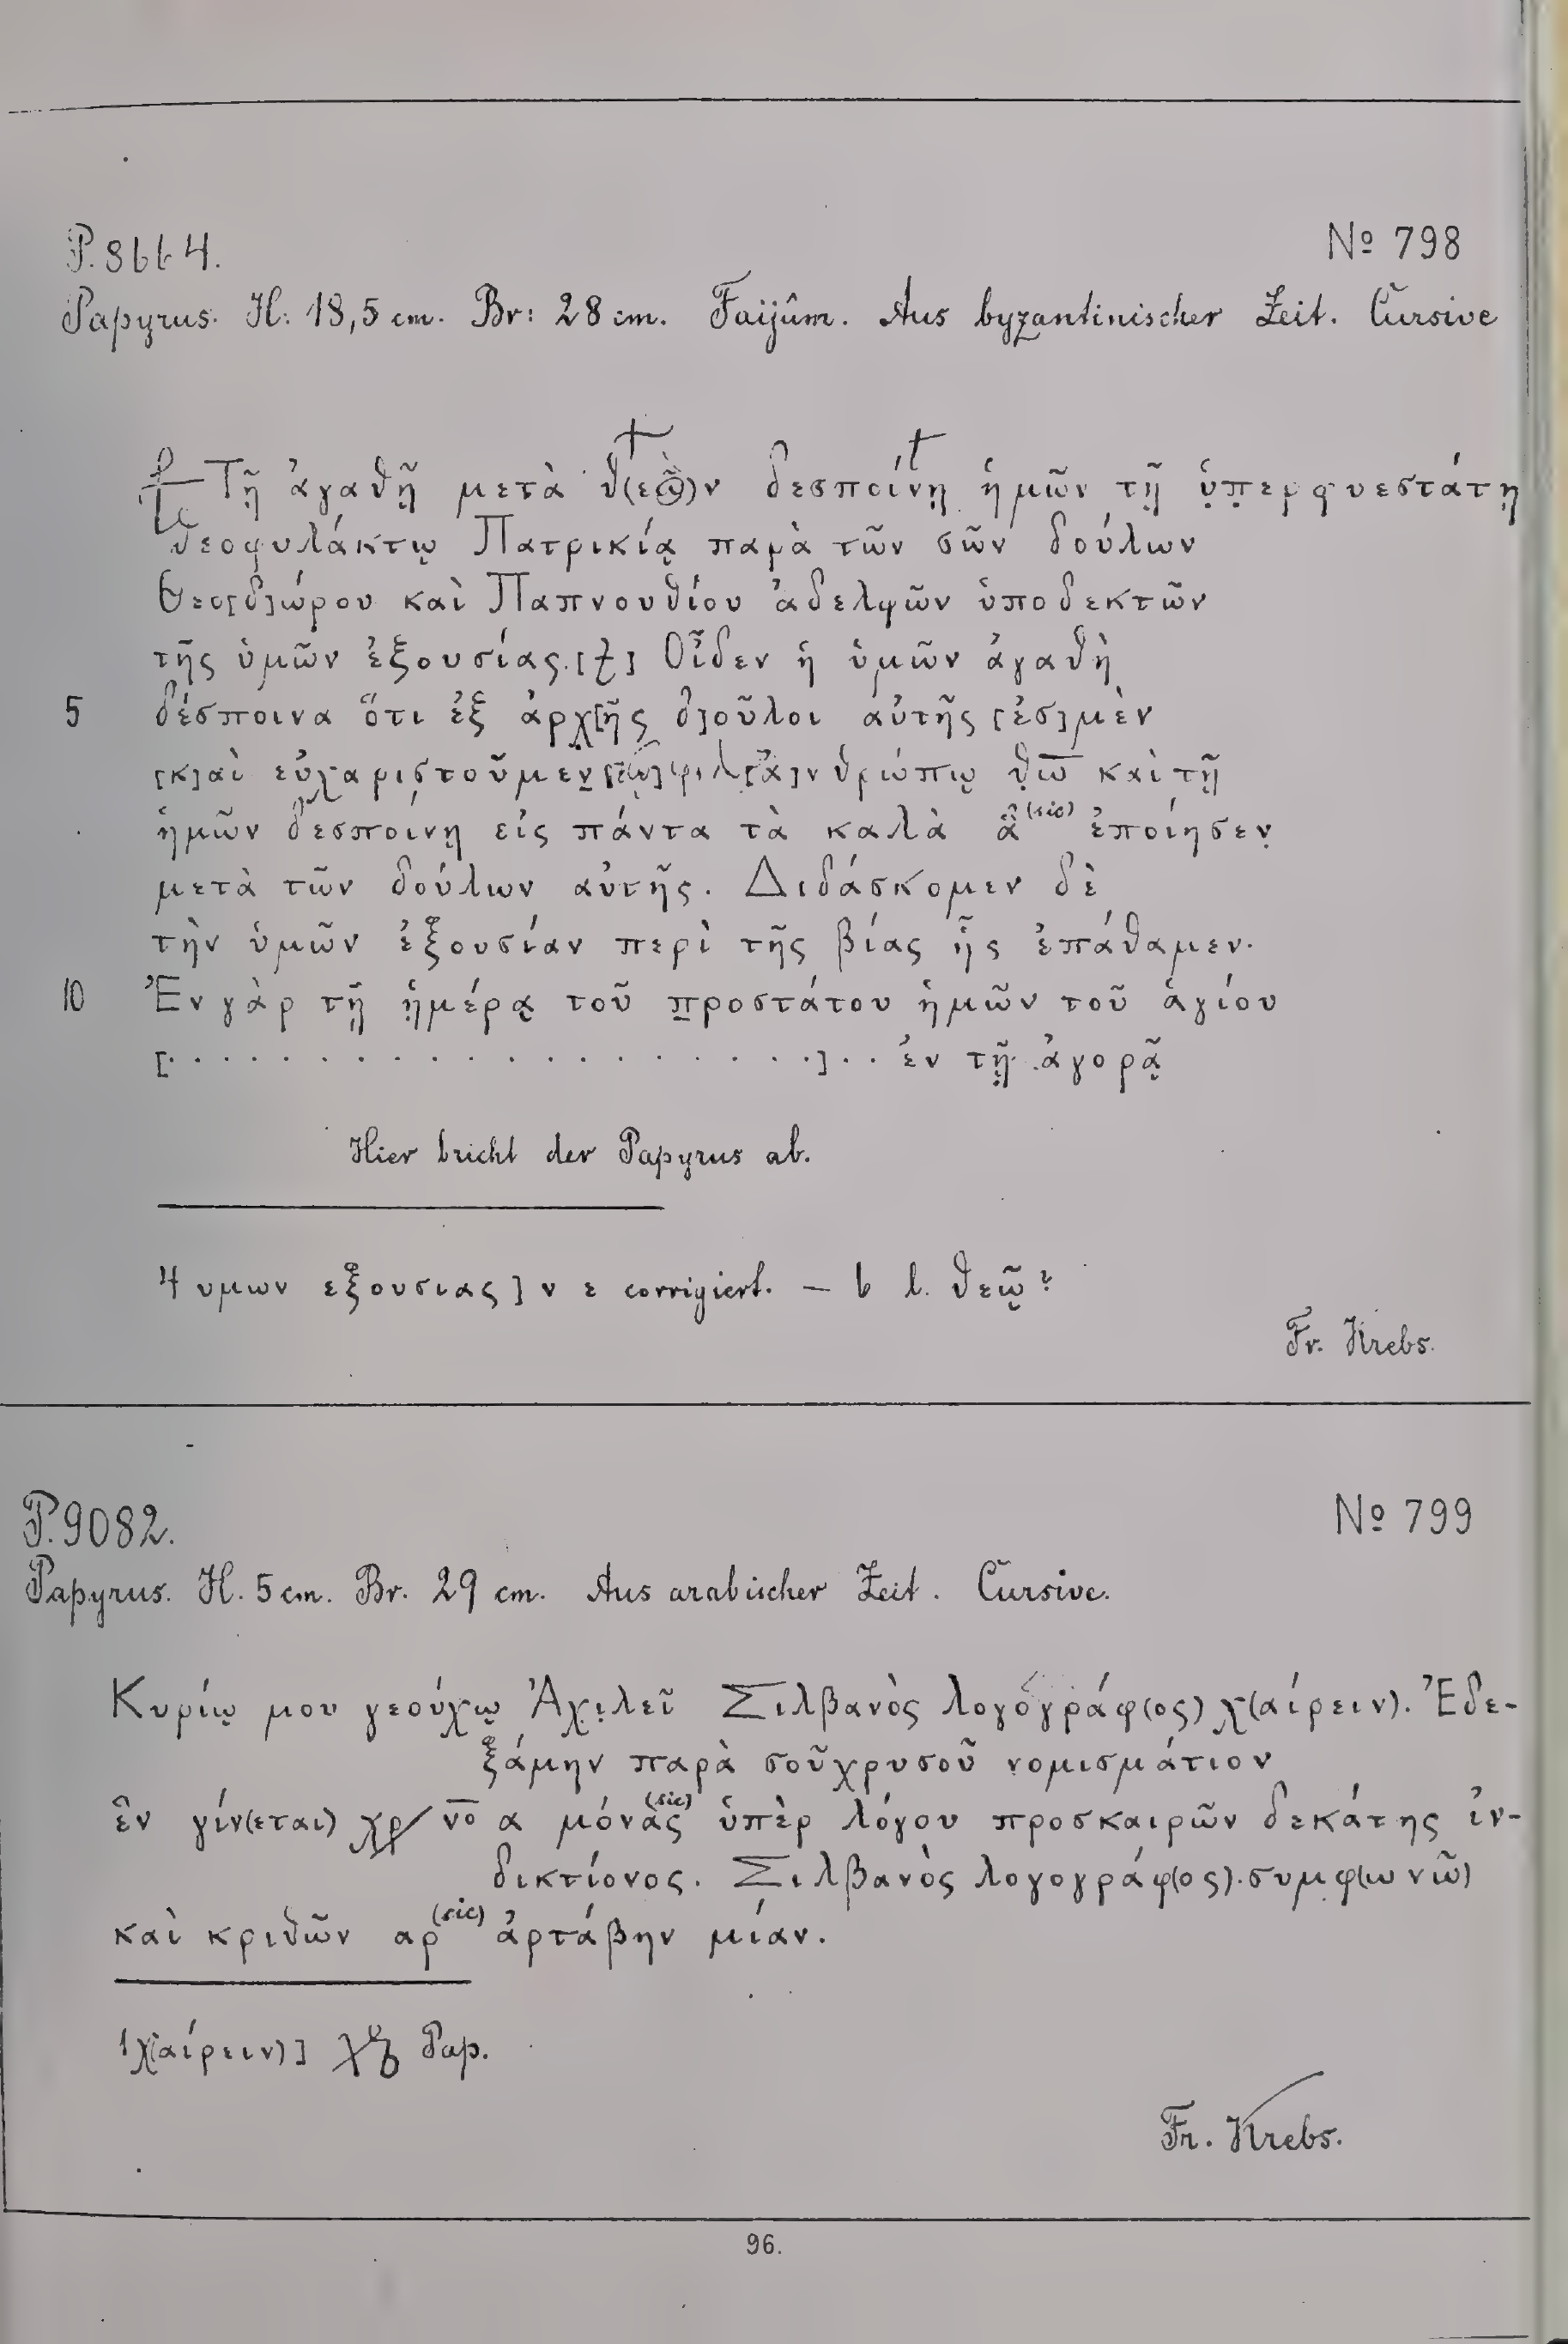 P. 8664. № 798
Papyrus. H: 18,5 cm. Br: 28 cm. Faijûm. Aus byzantinischer Zeit. Cursive
† †
⳨ Τῇ ἀγαθῇ μετὰ θ(εὸ)ν δεσποίνῃ ἡμῶν τῇ ὑπερφυεστάτῃ
θεοφυλάκτῳ Πατρικίᾳ παρὰ τῶν σῶν δούλων
Θεο[δ]ώρου καὶ Παπνουθίου ἀδελφῶν ὑποδεκτῶν
τῆς ὑμῶν ἐξουσίας. [ ] Οἶδεν ἡ ὑμῶν ἀγαθὴ
5 δέσποινα ὅτι ἐξ ἀρχ[ῆς δ]οῦλοι αὐτῆς [ἐσ]μὲν
[κ]αὶ εὐχαριστοῦμεν [τῷ] φιλ[α]νθρώπῳ θω̅ καὶ τῇ
ἡμῶν δεσποίνῃ εἰς πάντα τὰ καλὰ ἃ (sic) ἐποίησεν
μετὰ τῶν δούλων αὐτῆς. Διδάσκομεν δὲ
τὴν ὑμῶν ἐξουσίαν περὶ τῆς βίας ἧς ἐπάθαμεν.
10 Ἐν γὰρ τῇ ἡμέρᾳ τοῦ προστάτου ἡμῶν τοῦ ἁγίου
[. . . . . . . . . . . . . . . . . . .] . . ἐν τῇ ἀγορᾷ
Hier bricht der Papyrus ab.
4 υμων εξουσιας] ν ε corrigiert. — 6 l. θεῷ?
Fr. Krebs.
P. 9082. № 799
Papyrus. H. 5 cm. Br. 29 cm. Aus arabischer Zeit. Cursive.
Κυρίῳ μου γεούχῳ Ἀχιλεῖ Σιλβανὸς λογογράφ(ος) χ(αίρειν). Ἐδε-
ξάμην παρὰ σοῦ χρυσοῦ νομισμάτιον
ἓν γίν(εται) χρ/ ν̅ο̅ α μόνας (sic) ὑπὲρ λόγου προσκαιρῶν δεκάτης ἰν-
δικτίονος. Σιλβανὸς λογογράφ(ος). συμφ(ωνῶ)
καὶ κριθῶν αρ (sic) ἀρτάβην μίαν.
1 χ(αίρειν)] Pap.
Fr. Krebs.
96.